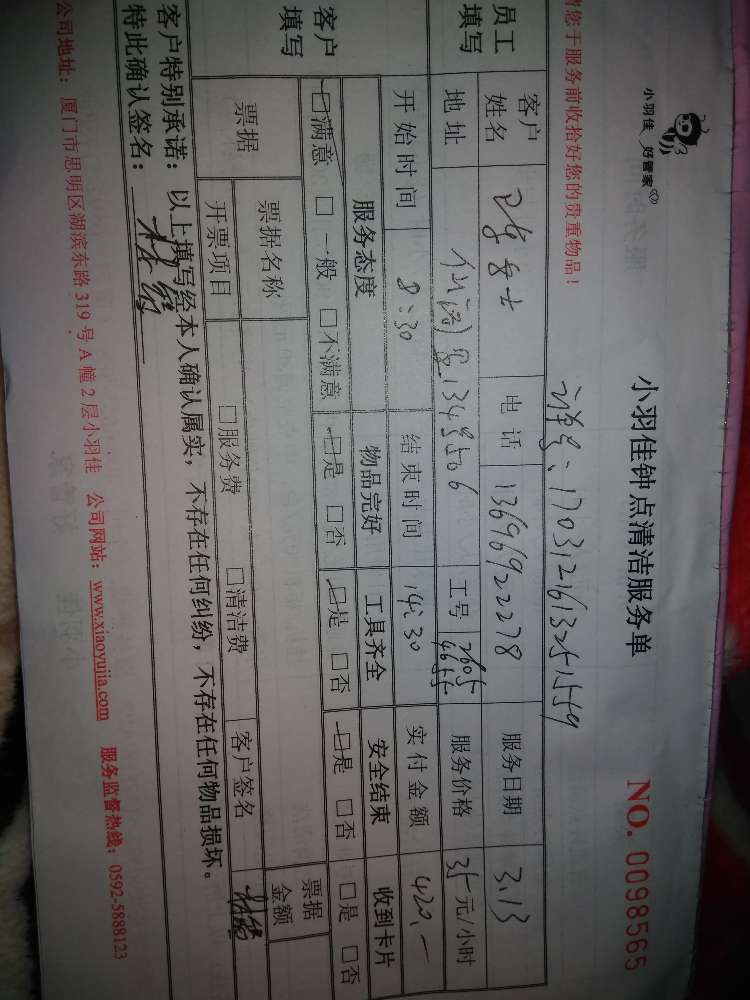 小羽佳 好管家
小羽佳钟点清洁服务单
NO. 0098565
您于服务前收拾好您的贵重物品！
员工填写
客户姓名 女士 电话 13696922278 服务日期 3.13
地址 里134号506 工号 2605 4655 服务价格 35元/小时
开始时间 8:30 结束时间 14:30 实付金额 420.—
客户填写
服务态度 物品完好 工具齐全 安全结束 收到卡片
☑满意 □一般 □不满意 ☑是 □否 ☑是 □否 ☑是 □否 □是 □否
票据 票据名称 票据金额
开票项目 □服务费 □清洁费 客户签名
客户特别承诺：以上填写经本人确认属实，不存在任何纠纷，不存在任何物品损坏。
特此确认签名：
公司地址：厦门市思明区湖滨东路319号A幢2层小羽佳 公司网站：www.xiaoyujia.com 服务监督热线：0592-5888123